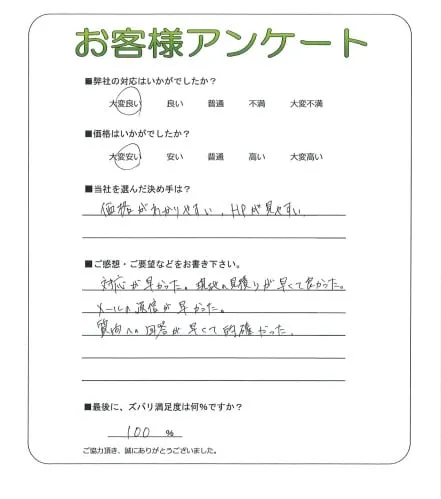 お客様アンケート
■弊社の対応はいかがでしたか?
大変良い 良い 普通 不満 大変不満
■価格はいかがでしたか?
大変安い 安い 普通 高い 大変高い
■当社を選んだ決め手は?
価格がわかりやすい、HPが見やすい、
■ご感想・ご要望などをお書き下さい。
対応が早かった。現地の見積りが早くて良かった。
メールの返信が早かった。
質問への回答が早くて的確だった。
■最後に、ズバリ満足度は何%ですか?
100 %
ご協力頂き、誠にありがとうございました。